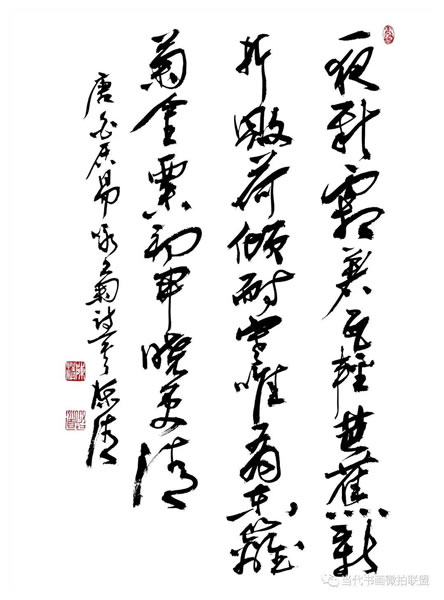 一夜新霜著瓦輕芭蕉新
折敗荷傾耐寒唯有东籬
菊金粟初开曉更清
唐白居易咏菊诗
当代书画微拍联盟